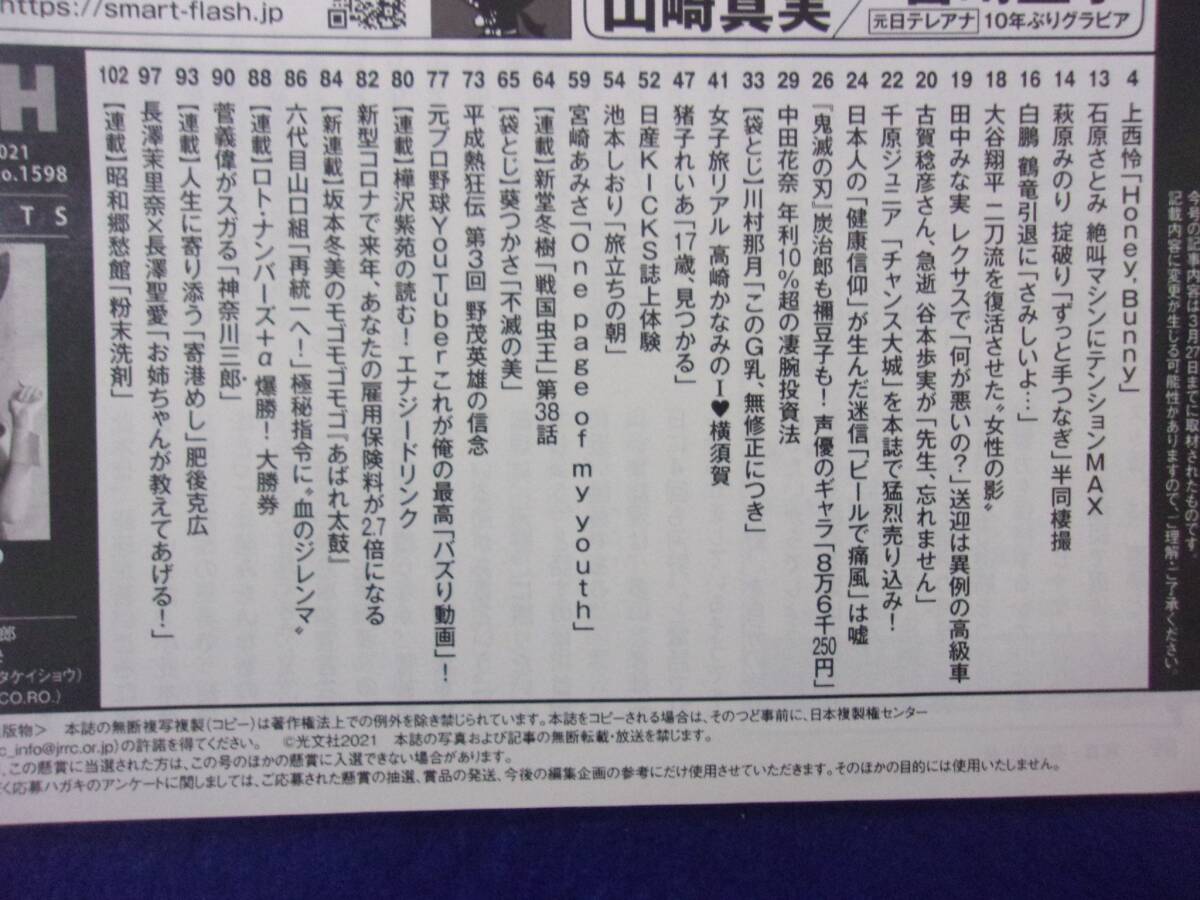 https://smart-flash.jp
山崎真実
元日テレアナ 10年ぶりグラビア
H
021
o.1598
TS
4 上西怜「Honey, Bunny」
13 石原さとみ 絶叫マシンにテンションMAX
14 萩原みのり 掟破り「ずっと手つなぎ」半同棲撮
16 白鵬 鶴竜引退に「さみしいよ…」
18 大谷翔平 二刀流を復活させた〝女性の影〟
19 田中みな実 レクサスで「何が悪いの?」送迎は異例の高級車
20 古賀稔彦さん、急逝 谷本歩実が「先生、忘れません」
22 千原ジュニア 「チャンス大城」を本誌で猛烈売り込み!
24 日本人の「健康信仰」が生んだ迷信「ビールで痛風」は嘘
26 『鬼滅の刃』炭治郎も禰豆子も! 声優のギャラ「8万6千250円」
29 中田花奈 年利10%超の凄腕投資法
33 【袋とじ】川村那月「このG乳、無修正につき」
41 女子旅リアル 高崎かなみのI♥横須賀
47 猪子れいあ「17歳、見つかる」
52 日産KICKS誌上体験
54 池本しおり「旅立ちの朝」
59 宮崎あみさ「One page of my youth」
64 【連載】新堂冬樹「戦国虫王」第38話
65 【袋とじ】葵つかさ「不滅の美」
73 平成熱狂伝 第3回 野茂英雄の信念
77 元プロ野球YouTuber これが俺の最高「バズり動画」!
80 【連載】樺沢紫苑の読む! エナジードリンク
82 新型コロナで来年、あなたの雇用保険料が2.7倍になる
84 【新連載】坂本冬美のモゴモゴモゴ『あばれ太鼓』
86 六代目山口組「再統一へ!」極秘指令に〝血のジレンマ〟
88 【連載】ロト・ナンバーズ+α 爆勝! 大勝券
90 菅義偉がスガる「神奈川三郎」
93 【連載】人生に寄り添う「寄港めし」肥後克広
97 長澤茉里奈×長澤聖愛「お姉ちゃんが教えてあげる!」
102 【連載】昭和郷愁館「粉末洗剤」
記載内容に変更が生じる可能性がありますので、ご理解・ご了承ください。
郎
タケイショウ)
CO.RO.)
版物> 本誌の無断複写複製(コピー)は著作権法上での例外を除き禁じられています。本誌をコピーされる場合は、そのつど事前に、日本複製権センター
c_info@jrrc.or.jp)の許諾を得てください。 ©光文社2021 本誌の写真および記事の無断転載・放送を禁じます。
、この懸賞に当選された方は、この号のほかの懸賞に入選できない場合があります。
く応募ハガキのアンケートに関しましては、ご応募された懸賞の抽選、賞品の発送、今後の編集企画の参考にだけ使用させていただきます。そのほかの目的には使用いたしません。